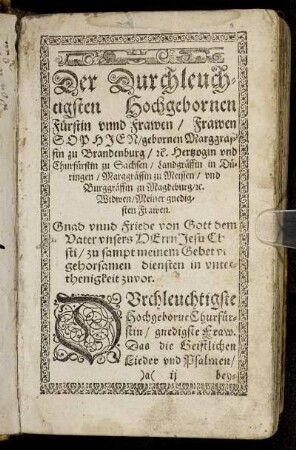 Der Durchleuch-
tigsten Hochgebornen
Fürstin vnnd Frawen / Frawen
SOPHIEN / gebornen Marggräf-
fin zu Brandenburg / ꝛc. Hertzogin vnd
Churfürstin zu Sachsen / Landgräffin in Dü-
ringen / Marggräffin zu Meissen / vnd
Burggräffin zu Magdeburg / ꝛc.
Widwen / Meiner gnedig-
sten Frawen.
Gnad vnnd Friede von Gott dem
Vater vnsers HErrn Jesu Chri
sti / zu sampt meinem Gebet vñ
gehorsamen diensten in vnte
thenigkeit zuvor.
DVrchleuchtigste
Hochgeborne Churfür-
stin / gnedigste Fraw.
Das die Geistlichen
Lieder vnd Psalmen /
)a( ij bey-